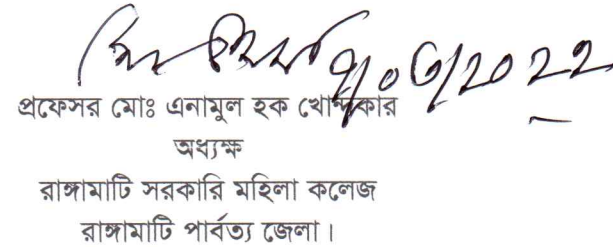 ৭/০৩/২০২২
প্রফেসর মোঃ এনামুল হক খোন্দকার
অধ্যক্ষ
রাঙ্গামাটি সরকারি মহিলা কলেজ
রাঙ্গামাটি পার্বত্য জেলা।